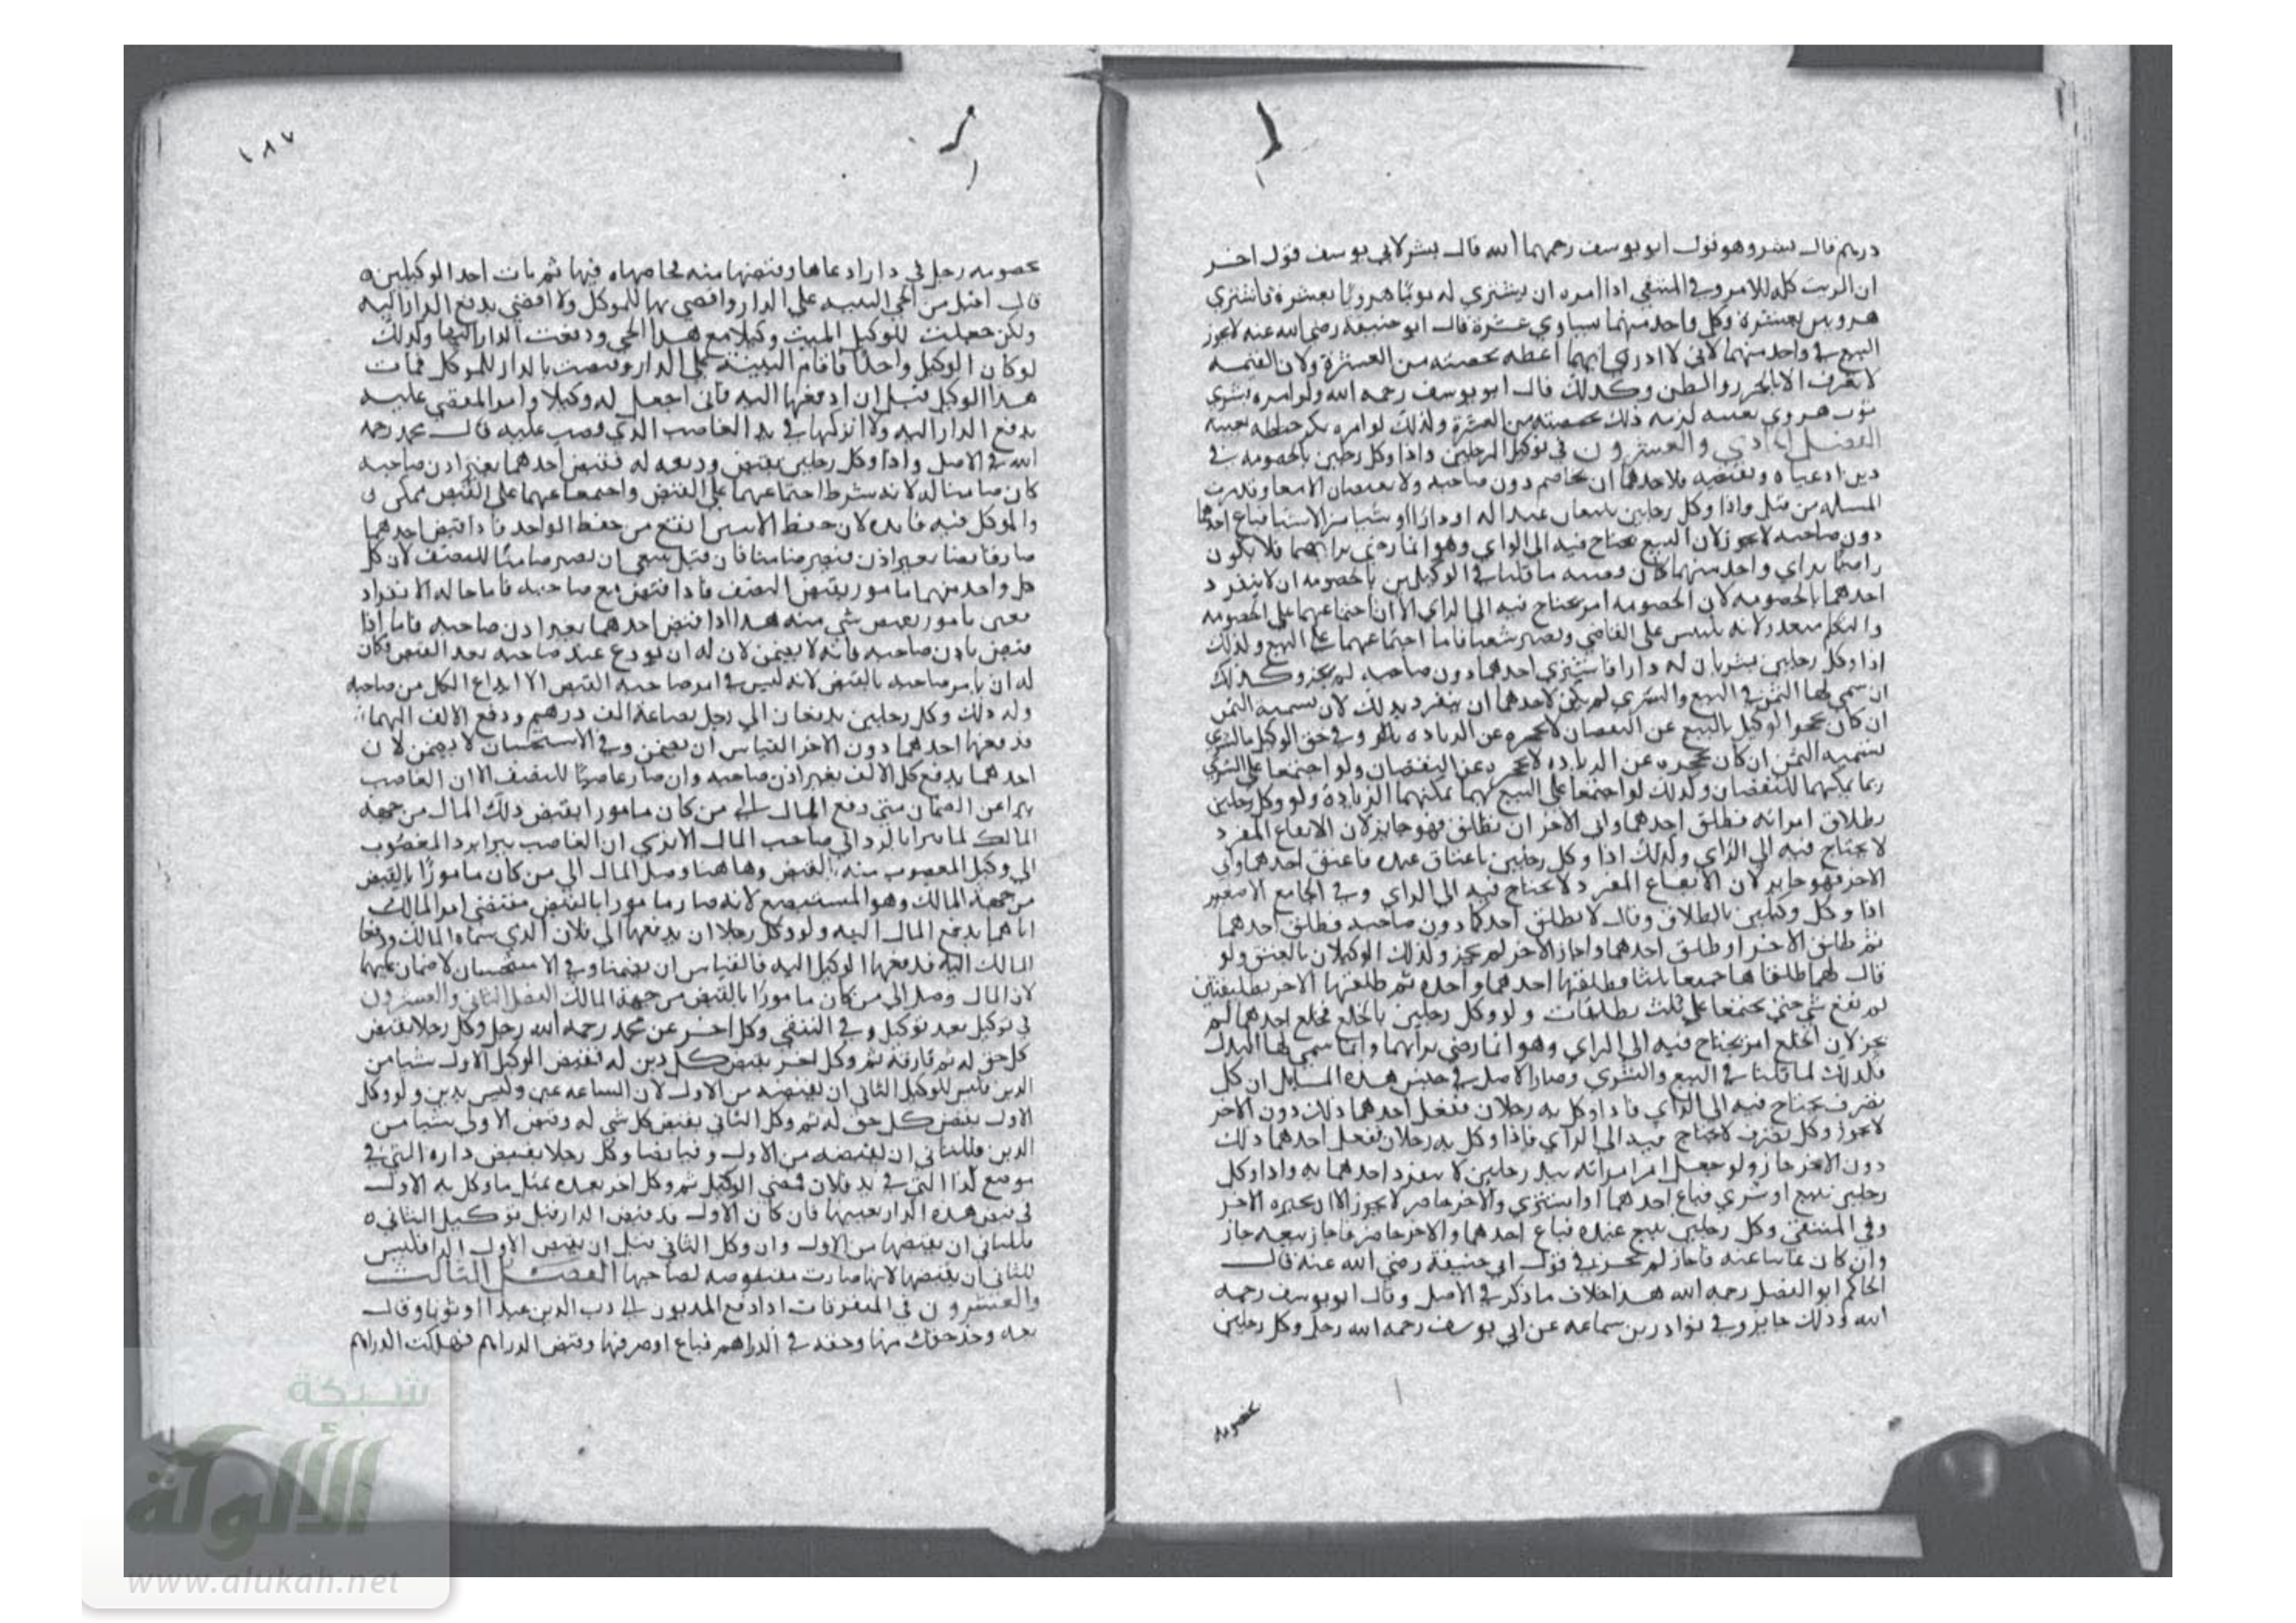 درهم قال بشر وهو قول ابو يوسف رحمهما الله قال بشر لابي يوسف قول اخر
ان الزيت كله للامر وفي المنتقى اذا امره ان يشتري له ثوبا هرويا بعشرة فاشترى
هرويين بعشرة وكل واحد منهما يساوي عشرة قال ابو حنيفة رضي الله عنه لا يجوز
البيع في واحد منهما لاني لا ادري ايهما اعطه بحصته من العشرة ولان القيمه
لا تعرف الا بالحزر والظن وكذلك قال ابو يوسف رحمه الله ولو امره بشرى
ثوب هروي بعينه لزمه ذلك بحصته من العشرة ولذلك لو امره بكر حنطه بعينه
الفصل الحادي والعشرون في توكيل الرجلين واذا وكل رجلين بالخصومه في
دين ادعياه وبقبضه فلاحدهما ان يخاصم دون صاحبه ولا يقبضان الا معا وقد مرت
المسله من قبل واذا وكل رجلين يبيعان عبدا له او دارا او شيا من الاشيا فباع احدهما
دون صاحبه لا يجوز لان البيع يحتاج فيه الى الراي وهو انما رضي برايهما فلا يكون
راضيا براي واحد منهما كان وقسه ما قلنا في الوكيلين بالخصومه ان لا ينفرد
احدهما بالخصومه لان الخصومه امر يحتاج فيه الى الراي الا ان اجتماعهما على الخصومه
والتكلم متعذر لانه يلتبس على القاضي ويصير شغبا فاما اجتماعهما على البيع ولذلك
اذا وكل رجلين يشتريان له دارا فاشترى احدهما دون صاحبه لم يجز وكذلك
ان سمى لهما الثمن في البيع والشرى لم يكن لاحدهما ان ينفرد بذلك لان تسميه الثمن
ان كان يحجر الوكيل بالبيع عن النقصان لا يحجره عن الزياده وفي حق الوكيل بالشرى
تسميه الثمن ان كان يحجره عن الزياده لا يحجره عن النقصان ولو اجتمعا على الشرى
ربما يمكنهما النقصان ولذلك لو اجتمعا على البيع ربما يمكنهما الزيادة ولو وكل رجلين
بطلاق امراته فطلق احدهما وابى الاخر ان يطلق فهو جايز لان الايقاع المفرد
لا يحتاج فيه الى الراي ولذلك اذا وكل رجلين باعتاق عبده فاعتق احدهما وابى
الاخر فهو جايز لان الايقاع المفرد لا يحتاج فيه الى الراي وفي الجامع الاصغر
اذا وكل وكيلين بالطلاق وقال لا يطلق احدكما دون صاحبه فطلق احدهما
ثم طلق الاخر او طلق احدهما واجاز الاخر لم يجز ولذلك الوكيلان بالعتق ولو
قال لهما طلقاها جميعا ثلثا فطلقها احدهما واحده ثم طلقها الاخر تطليقتين
لم تقع شي حتى يجتمعا على ثلث تطليقات ولو وكل رجلين بالخلع فخلع احدهما لم
يجز لان الخلع امر يحتاج فيه الى الراي وهو انما رضي برايهما وانما سمى لهما البدل
فلذلك لما قلنا في البيع والشرى وصار الاصل في جنس هذه المسايل ان كل
تصرف يحتاج فيه الى الراي فاذا وكل به رجلان ففعل احدهما ذلك دون الاخر
لا يجوز وكل تصرف لا يحتاج فيه الى الراي فاذا وكل به رجلان ففعل احدهما ذلك
دون الاخر جاز ولو جعل امر امراته بيد رجلين لا ينفرد احدهما به واذا وكل
رجلين ببيع او شرى فباع احدهما او اشترى والاخر حاضر لا يجوز الا ان يجيزه الاخر
وفي المنتقى وكل رجلين ببيع عبده فباع احدهما والاخر حاضر فاجاز بيعه جاز
وان كان غايبا عنه فاجاز لم يجز في قول ابي حنيفة رضي الله عنه قال
الحاكم ابو الفضل رحمه الله هذا خلاف ما ذكر في الاصل وقال ابو يوسف رحمه
الله وذلك جايز وفي نوادر بن سماعه عن ابي يوسف رحمه الله رجل وكل رجلين
بخصومه
١٨٧
بخصومه رجل في دار ادعاها وقبضها منه فخاصماه فيها ثم مات احد الوكيلين
قال اقبل من الحي البينه على الدار واقضي بها للموكل ولا اقضي بدفع الدار اليه
ولكن جعلت للوكيل الميت وكيلا مع هذا الحي ودفعت الدار اليهما ولذلك
لو كان الوكيل واحدا فاقام البينة على الدار وقضيت بالدار للموكل فمات
هذا الوكيل قبل ان ادفعها اليه فاني اجعل له وكيلا وامر المقضي عليه
بدفع الدار اليه ولا اتركها في يد الغاصب الذي قضيت عليه قال محمد رحمه
الله في الاصل واذا وكل رجلين بقبض وديعه له فقبض احدهما بغير اذن صاحبه
كان ضامنا له لانه شرط اجتماعهما على القبض واجتماعهما على القبض ممكن
وللموكل فيه فايده لان حفظ الاثنين انفع من حفظ الواحد فاذا قبض احدهما
صار قابضا بغير اذن فيصير ضامنا فان قيل ينبغي ان يصير ضامنا للنصف لان كل
كل واحد منهما مامور بقبض النصف فاذا قبض مع صاحبه فاما حاله الانفراد
فغير مامور بقبض شي منه هذا اذا قبض احدهما بغير اذن صاحبه فاما اذا
قبض باذن صاحبه فانه لا يضمن لان له ان يودع عند صاحبه بعد القبض فكان
له ان يامر صاحبه بالقبض لانه ليس في امر صاحبه القبض الا ايداع الكل من صاحبه
وله ذلك وكل رجلين يدفعان الى رجل بضاعة الف درهم ودفع الالف اليهما
فدفعها احدهما دون الاخر القياس ان يضمن وفي الاستحسان لا يضمن لان
احدهما بدفع كل الالف بغير اذن صاحبه وان صار غاصبا للنصف الا ان الغاصب
يبرا عن الضمان متى دفع المال الى من كان مامورا بقبض ذلك المال من جهة
المالك كما يبرا بالرد الى صاحب المال الا ترى ان الغاصب يبرا برد المغصوب
الى وكيل المغصوب منه بالقبض وها هنا وصل المال الى من كان مامورا بالقبض
من جهة المالك وهو المستبضع لانه صار مامورا بالقبض مقتضى امر المالك
اياهما بدفع المال اليه ولو وكل رجلا ان يدفعها الى فلان الذي سماه المالك ودفعا
المالك اليه فدفعها الوكيل اليه فالقياس ان يضمنا وفي الاستحسان لا ضمان عليهما
لان المال وصل الى من كان مامورا بالقبض من جهة المالك الفصل الثاني والعشرون
في توكيل بعد توكيل وفي المنتقى وكل اخر عن محمد رحمه الله رجل وكل رجلا بقبض
كل حق له ثم فارقه ثم وكل اخر بقبض كل دين له فقبض الوكيل الاول شيا من
الدين فليس للوكيل الثاني ان يقبضه من الاول لان الساعه عين وليس بدين ولو وكل
الاول بقبض كل حق له ثم وكل الثاني بقبض كل شي له وقبض الاول شيا من
الدين فللثاني ان يقبضه من الاول وفيه ايضا وكل رجلا بقبض داره التي في
موضع كذا التي في يد فلان فمضى الوكيل ثم وكل اخر بعده بمثل ما وكل به الاول
في قبض هذه الدار بعينها فان كان الاول قد قبض الدار قبل توكيل الثاني
فللثاني ان يقبضها من الاول وان وكل الثاني قبل ان يقبض الاول الدار فليس
للثاني ان يقبضها لانها صارت مقبوضه لصاحبها الفصل الثالث
والعشرون في المتفرقات اذا دفع المديون الى رب الدين عبدا او ثوبا وقال
بعه وخذ حقك منها وحقه في الدراهم فباع او صرفها وقبض الدراهم فهلكت الدراهم
شبكة
الألوكة
www.alukah.net